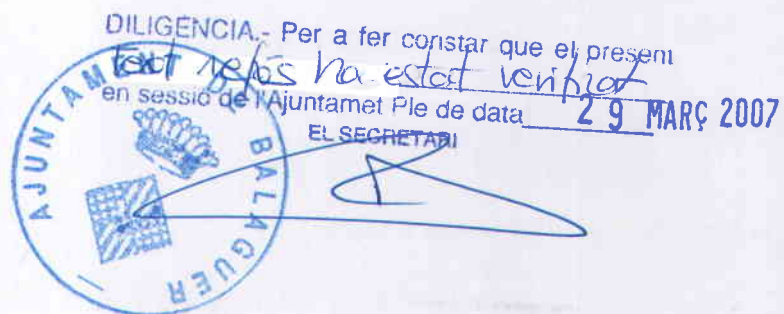 DILIGENCIA.- Per a fer constar que el present
text refós ha estat verificat
en sessió de l'Ajuntamet Ple de data 29 MARÇ 2007
EL SECRETARI
AJUNTAMENT DE BALAGUER